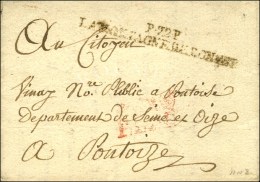 P.72.P.
LA MONTAGNE DU BON AIR
Au Citoyen
Vinay N.re Public a Pontoise
Departement de Seine et Oize
A Pontoize